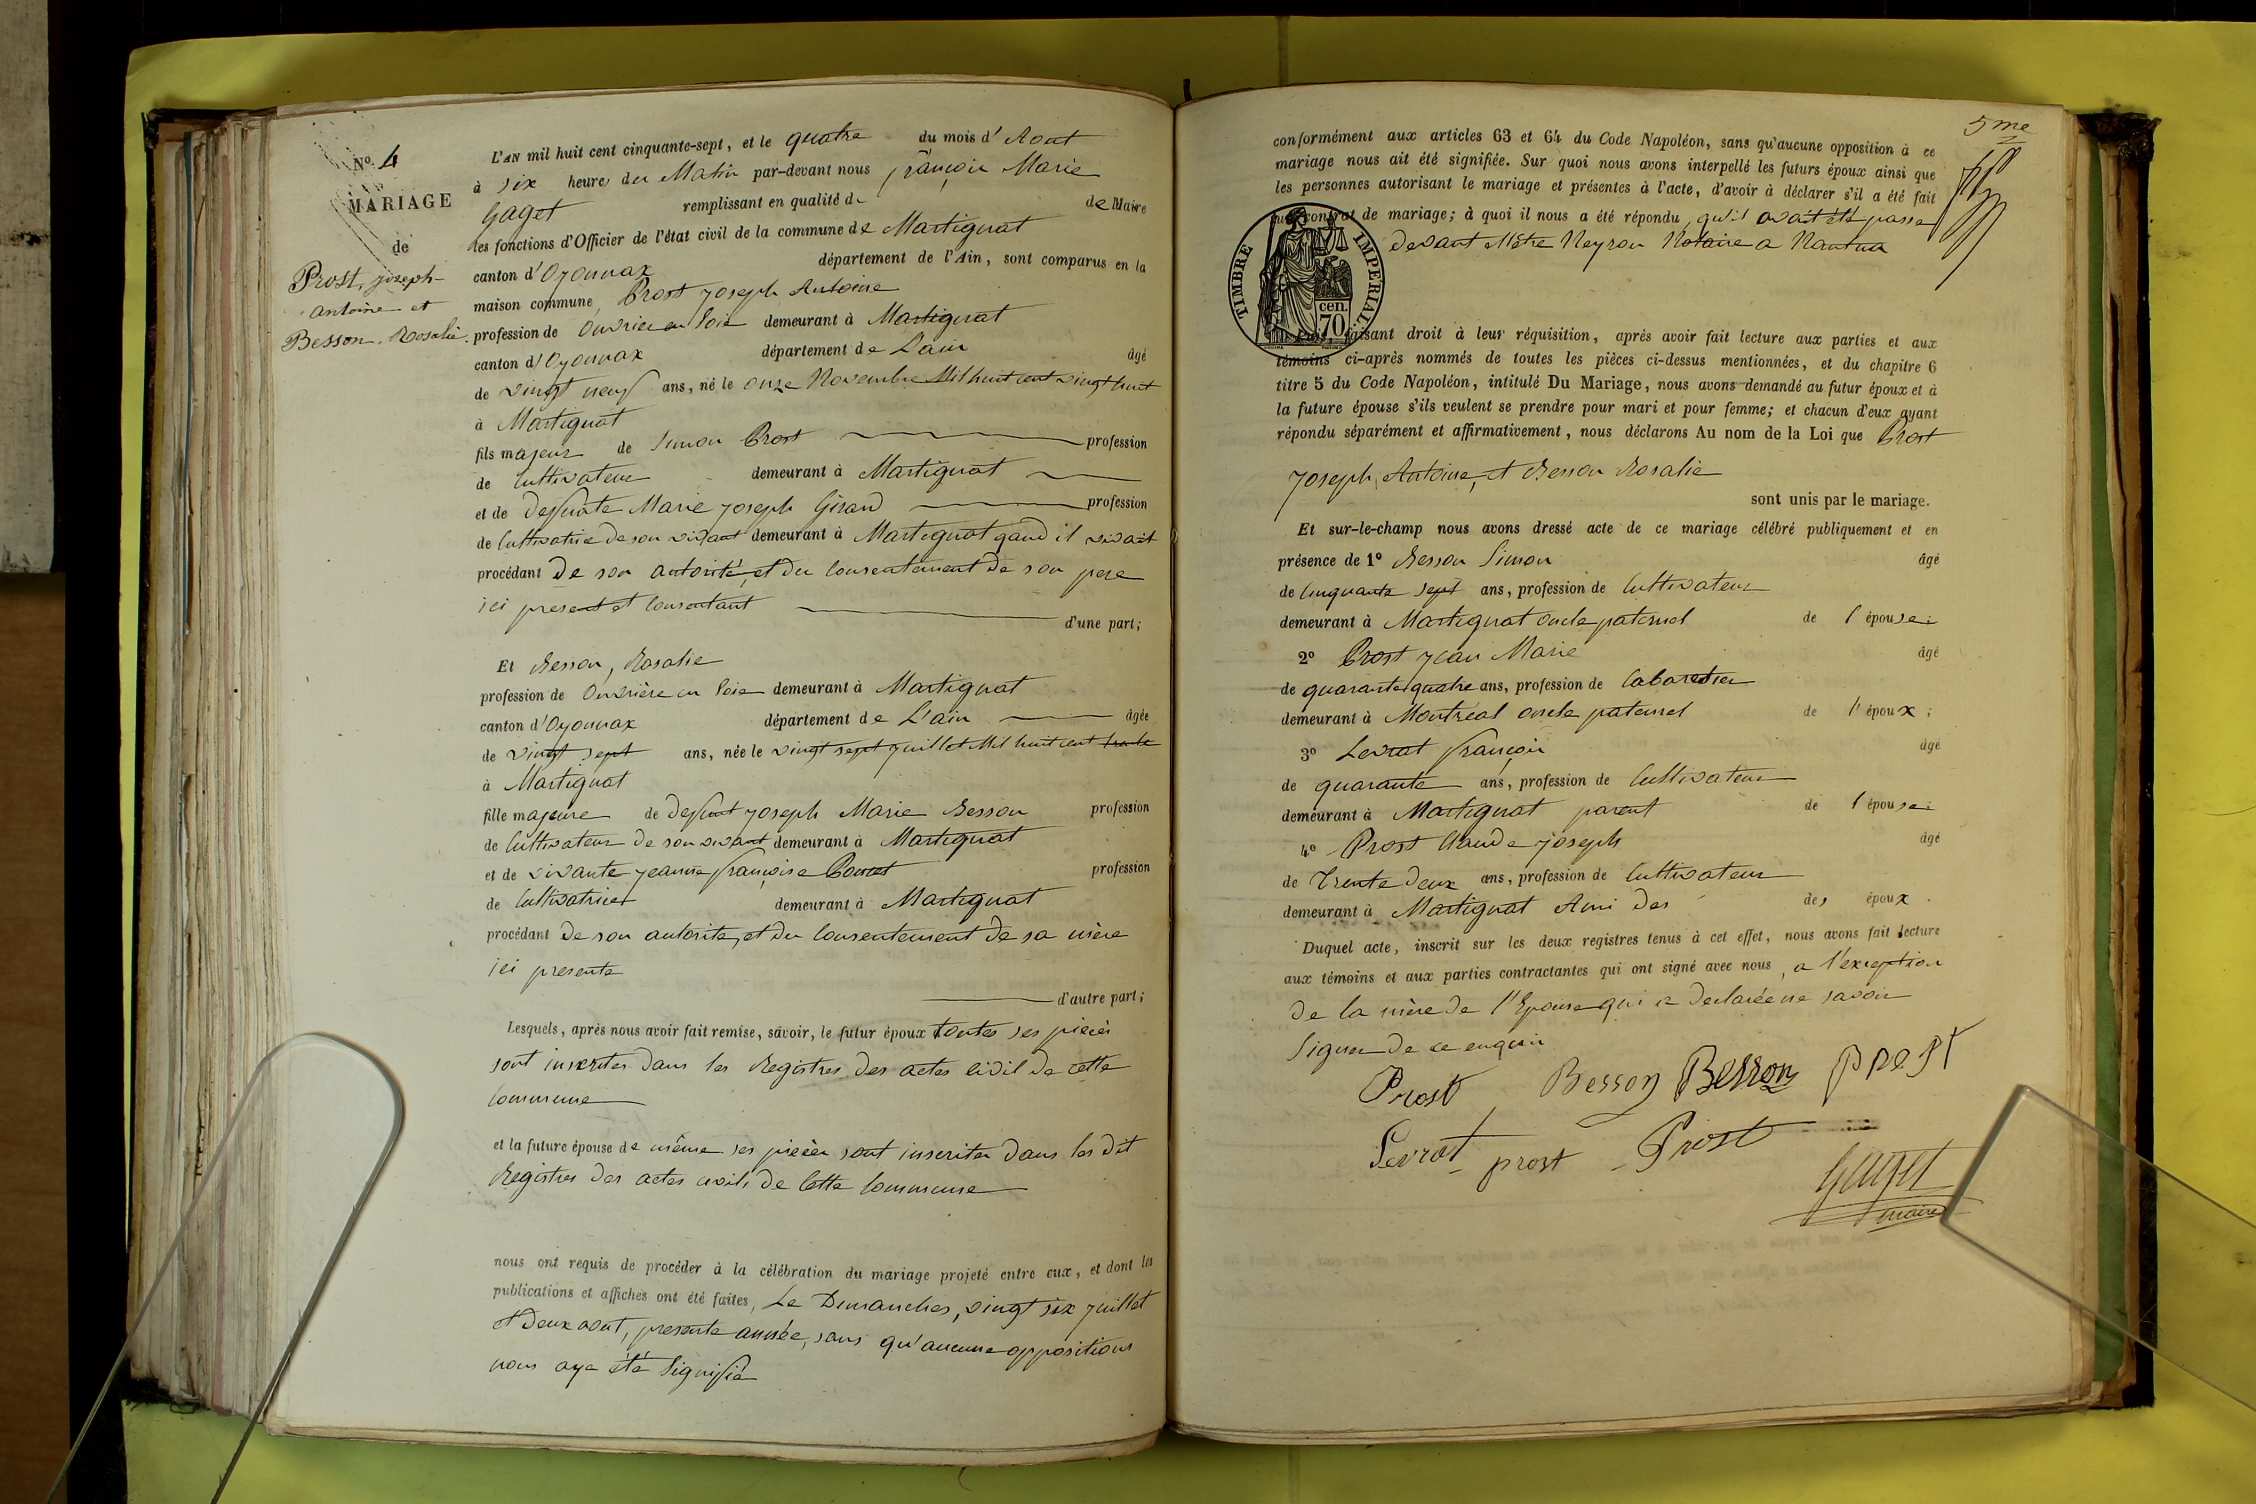 N° 4
MARIAGE
de
Prost, joseph-
antoine et
Besson, Rosalie.
L'AN mil huit cent cinquante-sept, et le quatre du mois d'Aout
à six heures du Matin par-devant nous françois Marie
Gaget remplissant en qualité de de Maire
les fonctions d'Officier de l'état civil de la commune de Martignat
canton d'Oyonnax département de l'Ain, sont comparus en la
maison commune Prost joseph Antoine
profession de Ouvrier en Soie demeurant à Martignat
canton d'Oyonnax département de L'ain âgé
de vingt neuf ans, né le onze Novembre Mil huit cent vingt huit
à Martignat
fils majeur de Simon Prost profession
de Cultivateur demeurant à Martignat
et de deffunte Marie joseph Girand profession
de Cultivatrice de son vivant demeurant à Martignat qand il vivait
procédant de son autorité, et du consentement de son pere
ici present et consentant d'une part;
Et Besson, Rosalie
profession de Ouvrière en Soie demeurant à Martignat
canton d'Oyonnax département de L'ain âgée
de vingt sept ans, née le vingt sept juillet Mil huit cent trente
à Martignat
fille majeure de deffunt joseph Marie Besson profession
de Cultivateur de son vivant demeurant à Martignat
et de vivante jeanne françoise Poncet profession
de Cultivatrice demeurant à Martignat
procédant de son autorité, et du consentement de sa mère
ici presente
d'autre part;
Lesquels, après nous avoir fait remise, savoir, le futur époux toutes ses pieces
sont inscrites dans les Registres des actes civil de cette
commune
et la future épouse de même ses pièces sont inscrites dans les dit
Registres des actes civils de cette commune
nous ont requis de procéder à la célébration du mariage projeté entre eux, et dont les
publications et affiches ont été faites, Le Dimanches, vingt six juillet
et deux aout, presente année, sans qu'aucune oppositions
nous aye été Signifié
5me
conformément aux articles 63 et 64 du Code Napoléon, sans qu'aucune opposition à ce
mariage nous ait été signifiée. Sur quoi nous avons interpellé les futurs époux ainsi que
les personnes autorisant le mariage et présentes à l'acte, d'avoir à déclarer s'il a été fait
un contrat de mariage; à quoi il nous a été répondu, qu'il avait été passé
devant Mêtre Neyron Notaire a Nantua
TIMBRE IMPERIAL
cen.
70
faisant droit à leur réquisition, après avoir fait lecture aux parties et aux
témoins ci-après nommés de toutes les pièces ci-dessus mentionnées, et du chapitre 6
titre 5 du Code Napoléon, intitulé Du Mariage, nous avons demandé au futur époux et à
la future épouse s'ils veulent se prendre pour mari et pour femme; et chacun d'eux ayant
répondu séparément et affirmativement, nous déclarons Au nom de la Loi que Prost
joseph, Antoine, et Besson Rosalie
sont unis par le mariage.
Et sur-le-champ nous avons dressé acte de ce mariage célébré publiquement et en
présence de 1° Besson Simon âgé
de Cinquante sept ans, profession de Cultivateur
demeurant à Martignat oncle paternel de l'épouse;
2° Prost jean Marie âgé
de quarante quatre ans, profession de Cabaretier
demeurant à Montréal oncle paternel de l'époux;
3° Levrat françois âgé
de quarante ans, profession de Cultivateur
demeurant à Martignat parent de l'épouse;
4° Prost Claude joseph âgé
de Trente deux ans, profession de Cultivateur
demeurant à Martignat Ami des des époux.
Duquel acte, inscrit sur les deux registres tenus à cet effet, nous avons fait lecture
aux témoins et aux parties contractantes qui ont signé avec nous, a l'exception
de la mère de l'Epouse qui a declarée ne savoir
Signer de ce enquis
Prost Besson Besson prost
Levrat prost Prost
Gaget
maire